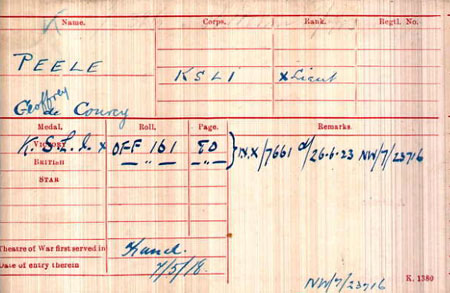 Name. Corps. Rank. Regtl. No.
PEELE KSLI x Lieut
Geoffrey
de Courcy
Medal. Roll. Page. Remarks.
VICTORY K.S.L.I. x OFF 161 80 } IV.X/7661 d/26-6-23 NW/7/23716
BRITISH — " — — " —
STAR
Theatre of War first served in
Date of entry therein 7/5/18.
NW/7/23716 K. 1380